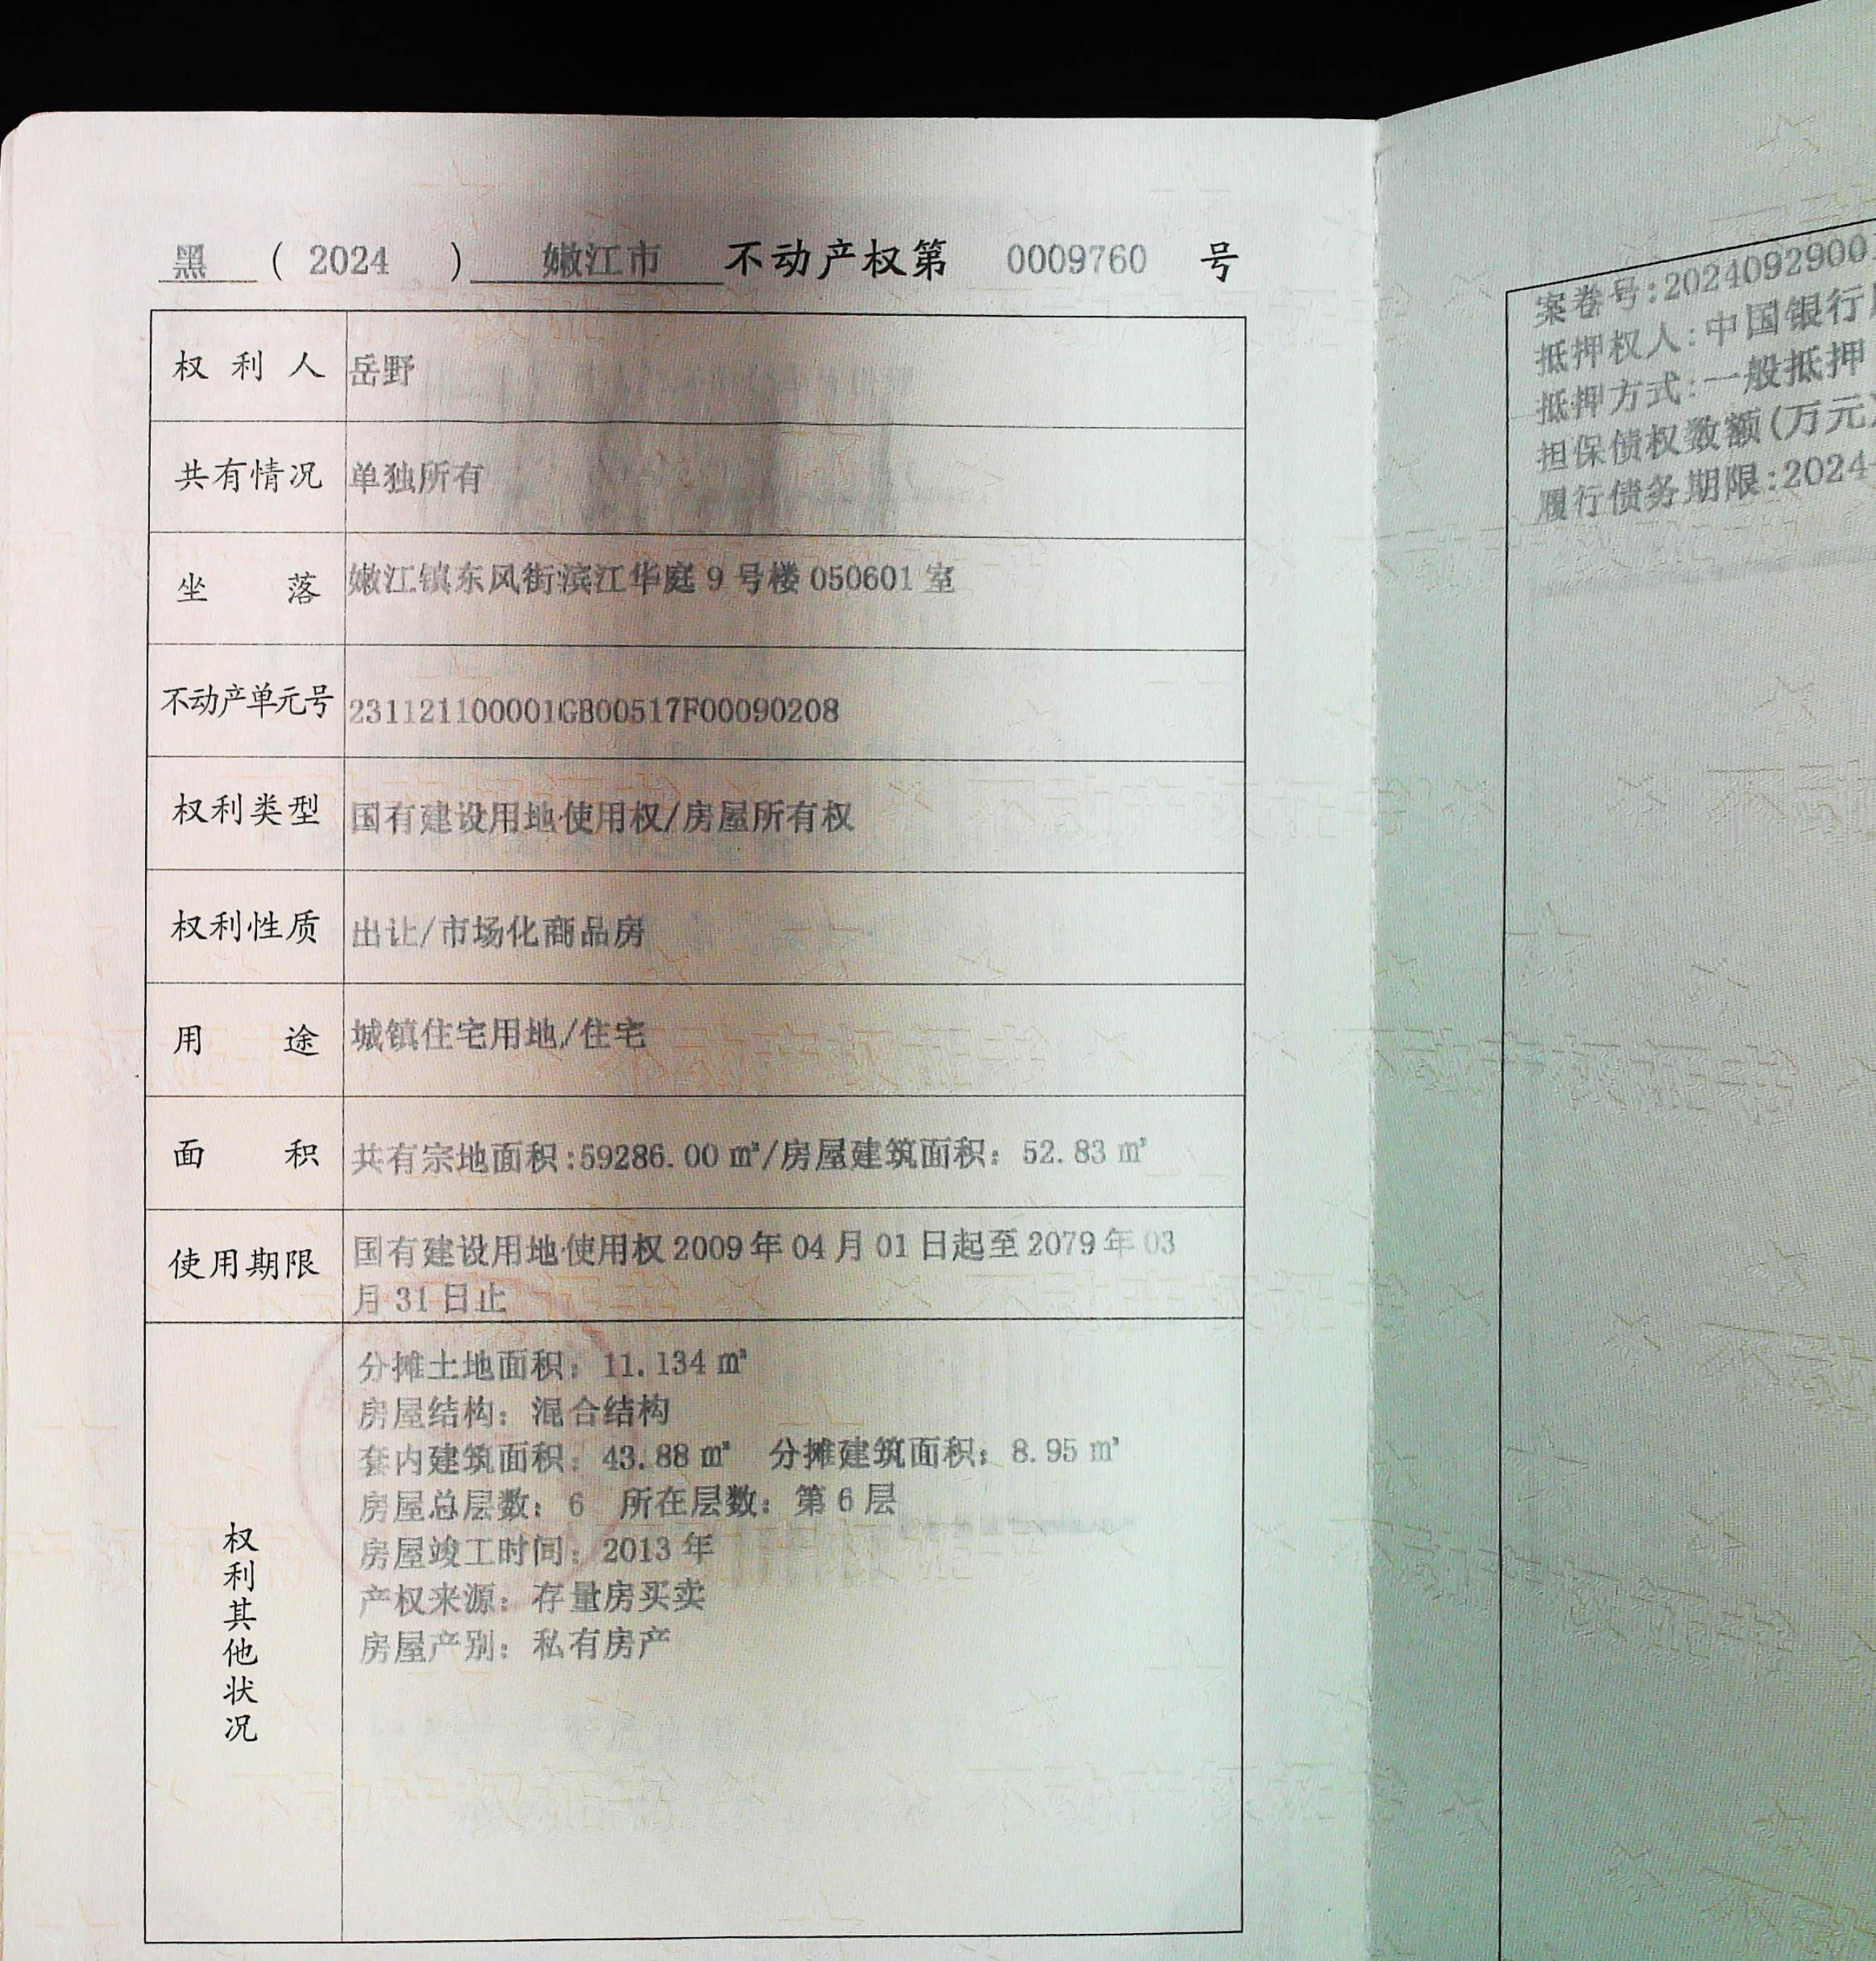 黑 ( 2024 ) 嫩江市 不动产权第 0009760 号
权利人 岳野
共有情况 单独所有
坐落 嫩江镇东风街滨江华庭 9 号楼 050601 室
不动产单元号 231121100001GB00517F00090208
权利类型 国有建设用地使用权/房屋所有权
权利性质 出让/市场化商品房
用途 城镇住宅用地/住宅
面积 共有宗地面积:59286.00 ㎡/房屋建筑面积: 52.83 ㎡
使用期限 国有建设用地使用权 2009 年 04 月 01 日起至 2079 年 03
月 31 日止
权利其他状况
分摊土地面积: 11.134 ㎡
房屋结构: 混合结构
套内建筑面积: 43.88 ㎡ 分摊建筑面积: 8.95 ㎡
房屋总层数: 6 所在层数: 第 6 层
房屋竣工时间: 2013 年
产权来源: 存量房买卖
房屋产别: 私有房产
案卷号:2024092900
抵押权人:中国银行
抵押方式:一般抵押
担保债权数额(万元)
履行债务期限:2024-